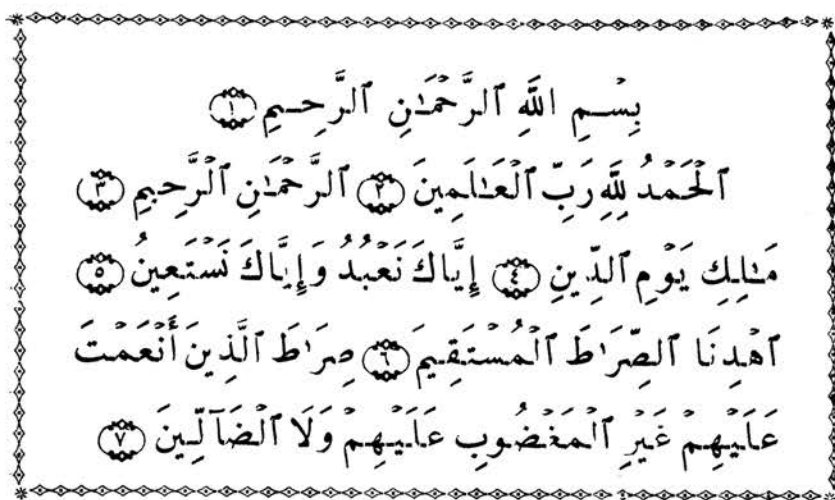 بِسْمِ اللَّهِ ٱلرَّحْمَـٰنِ ٱلرَّحِيمِ ١
ٱلْحَمْدُ لِلَّهِ رَبِّ ٱلْعَـٰلَمِينَ ٢ ٱلرَّحْمَـٰنِ ٱلرَّحِيمِ ٣
مَـٰلِكِ يَوْمِ ٱلدِّينِ ٤ إِيَّاكَ نَعْبُدُ وَإِيَّاكَ نَسْتَعِينُ ٥
ٱهْدِنَا ٱلصِّرَٰطَ ٱلْمُسْتَقِيمَ ٦ صِرَٰطَ ٱلَّذِينَ أَنْعَمْتَ
عَلَيْهِمْ غَيْرِ ٱلْمَغْضُوبِ عَلَيْهِمْ وَلَا ٱلضَّآلِّينَ ٧